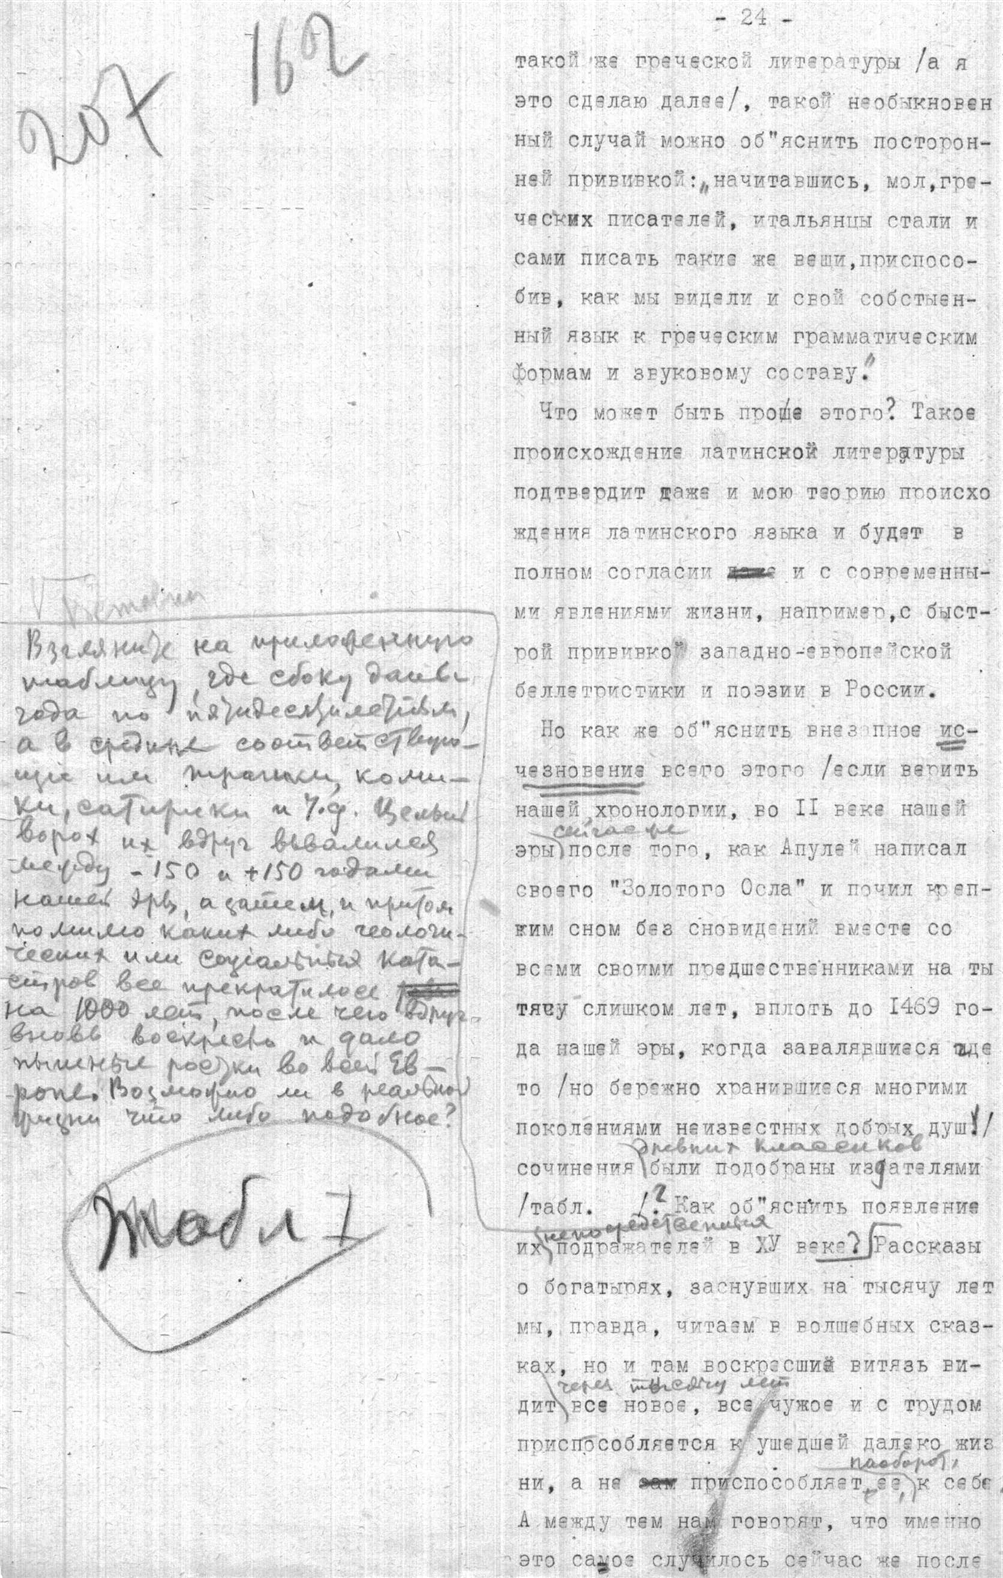 - 24 -
207
162
такой же греческой литературы /а я
это сделаю далее/, такой необыкновен
ный случай можно об"яснить посторон-
ней прививкой:„начитавшись, мол,гре-
ческих писателей, итальянцы стали и
сами писать такие же вещи,приспосо-
бив, как мы видели и свой собствен-
ный язык к греческим грамматическим
формам и звуковому составу."
Что может быть проще этого? Такое
происхождение латинской литературы
подтвердит даже и мою теорию происхо
ждения латинского языка и будет в
полном согласии и с современны-
ми явлениями жизни, например,с быст-
рой прививкой западно-европейской
беллетристики и поэзии в России.
Но как же об"яснить внезапное ис-
чезновение всего этого /если верить
нашей хронологии, во II веке нашей
сейчас же
эры после того, как Апулей написал
своего "Золотого Осла" и почил креп-
ким сном без сновидений вместе со
всеми своими предшественниками на ты
тячу слишком лет, вплоть до 1469 го-
да нашей эры, когда завалявшиеся где
то /но бережно хранившиеся многими
поколениями неизвестных добрых душ!/
древних классиков
сочинения были подобраны издателями
/табл. /? Как об"яснить появление
непосредственных
их подражателей в ХУ веке? Рассказы
о богатырях, заснувших на тысячу лет
мы, правда, читаем в волшебных сказ-
ках, но и там воскресший витязь ви-
через тысячу лет
дит все новое, все чужое и с трудом
приспособляется к ушедшей далеко жиз
наоборот,
ни, а не приспособляет ее к себе.
А между тем нам говорят, что именно
это самое случилось сейчас же после
Вставки
Взгляните на приложенную
таблицу, где сбоку даны
года по пятидесятилетьям,
а в средине соответствую-
щие им трагики, коми-
ки, сатирики и т.д. Целый
ворох их вдруг вывалился
между -150 и +150 годами
нашей эры, а затем, и притом
помимо каких либо геологи-
ческих или социальных ката-
строф все прекратилось
на 1000 лет, после чего вдруг
вновь воскресло и дало
пышные ростки во всей Ев-
ропе. Возможно ли в реальной
жизни что либо подобное?
Табл I